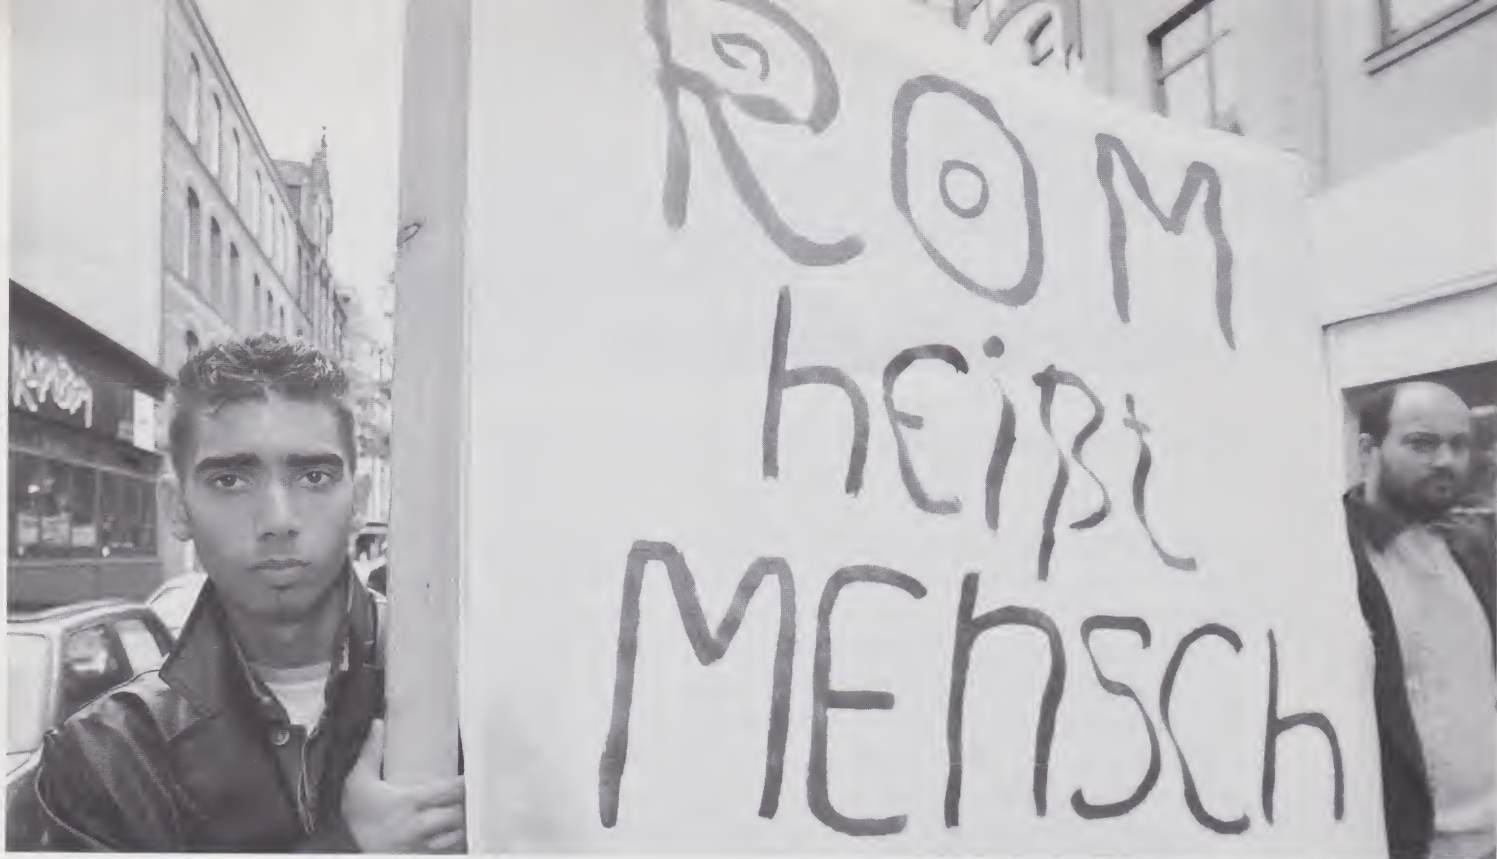 ROM
heißt
MEnSCh